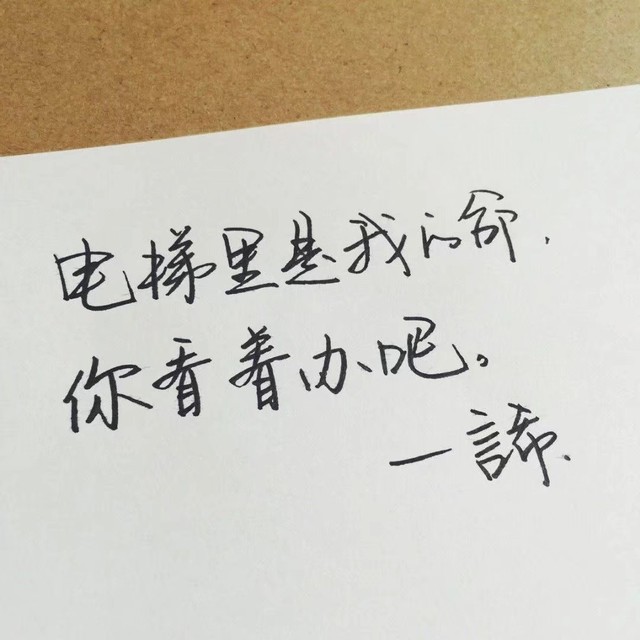 电梯里是我的窬,
你看着办吧。
一諦